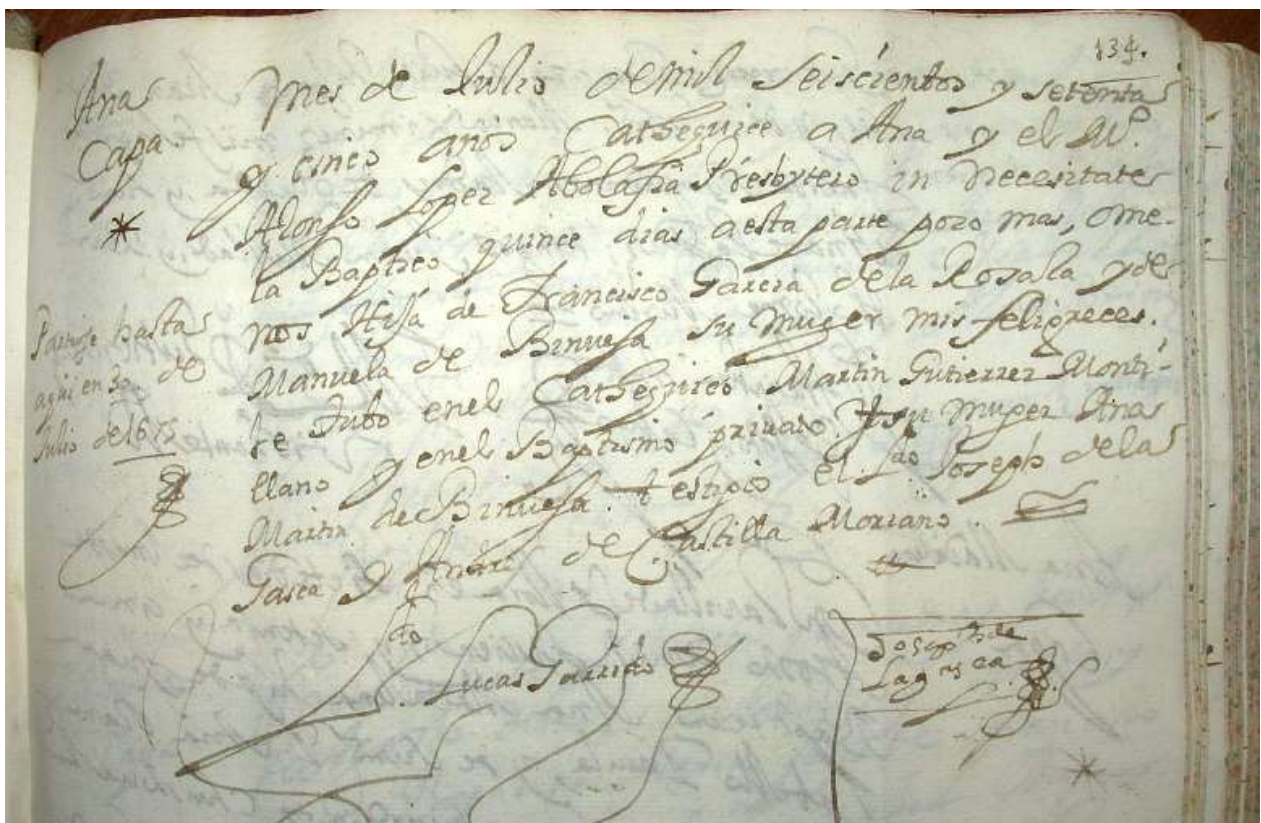 134.
Ana
Capa
mes de Julio de mil seiscientos y setenta
y cinco anos Cathequice a Ana y el M.º
Alonso Lopez Abolafia Presbytero in necesitate
la Baptiço quince dias a esta parte pozo mas, ome-
nos Hija de Francisco Garcia de la Rosa la y de
Manuela de Binuesa su muger mis feligreces.
se tubo en el Cathequico Martin Gutierrez Monti-
llano y en el Baptismo privado. Y su muger Ana
Martin de Binuesa. testigos el Ldo Joseph de la
Gasca y Andrs de Castilla Moriano.
hasta
aqui en 30 de
Julio de 1675
Ldo Lucas Garrido
Joseph de
Lagasca